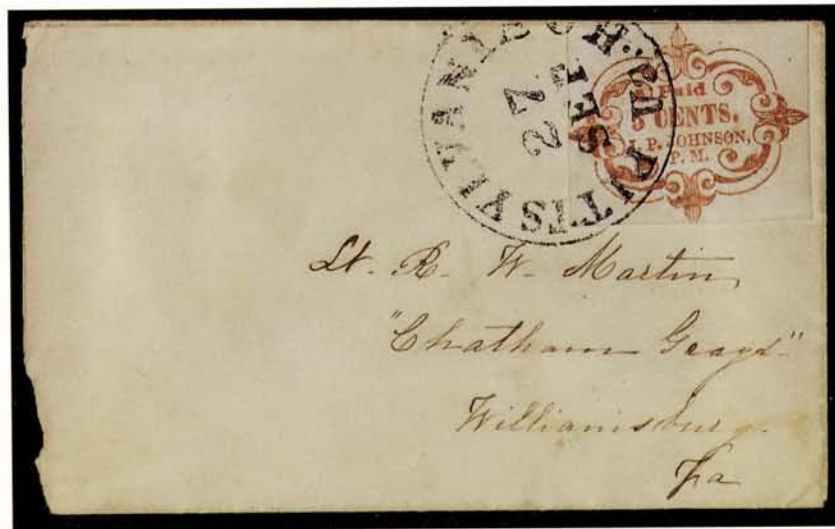 PITTSYLVANIA C.H. Va.
SEP
27
Paid
5 CENTS.
J. P. JOHNSON,
P. M.
Lt. R. W. Martin
"Chatham Grays"
Williamsburg
Va